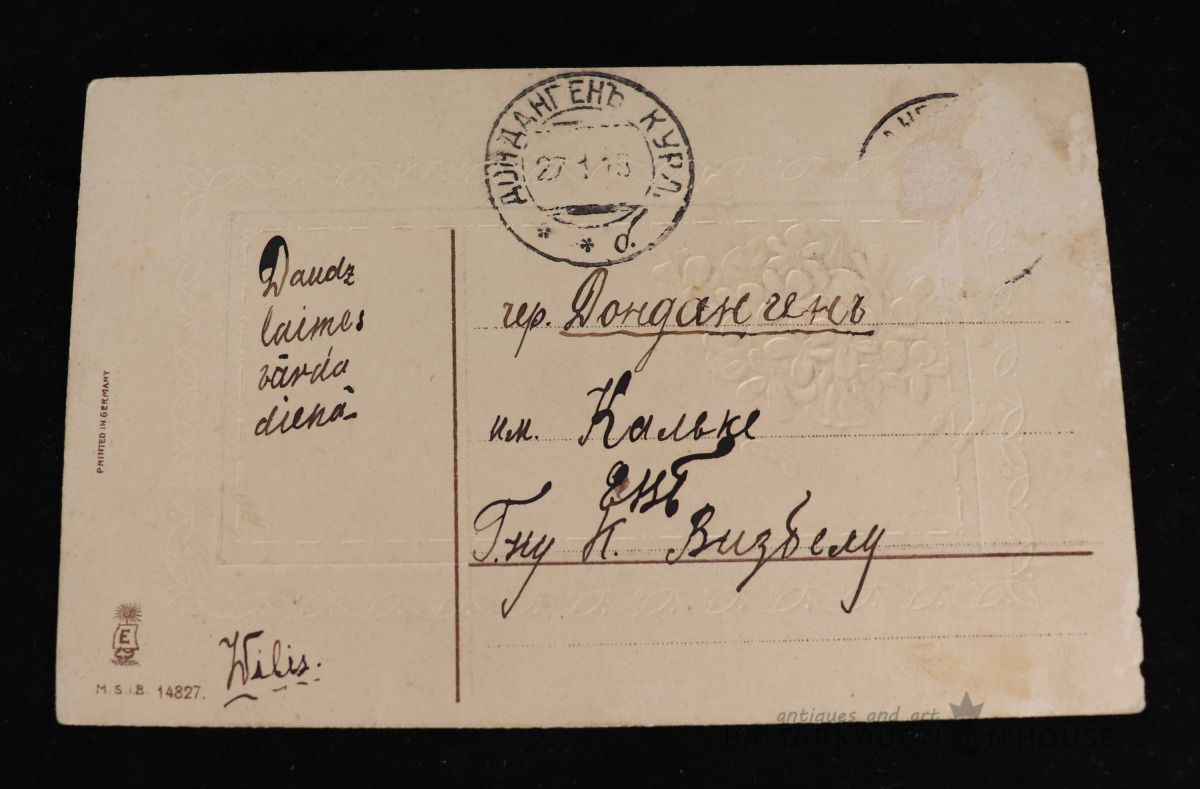 ДОНДАНГЕНЪ КУРЛ.
27 1 13
* * б.
Daudz
laimes
vārda
dienā
чер. Дондангенъ
им. Кальке
енъ
Г-ну К. Визбелу
Wilis.
PRINTED IN GERMANY
E
M. S. i. B. 14827.
antiques and art
BALTARS AUCTION HOUSE